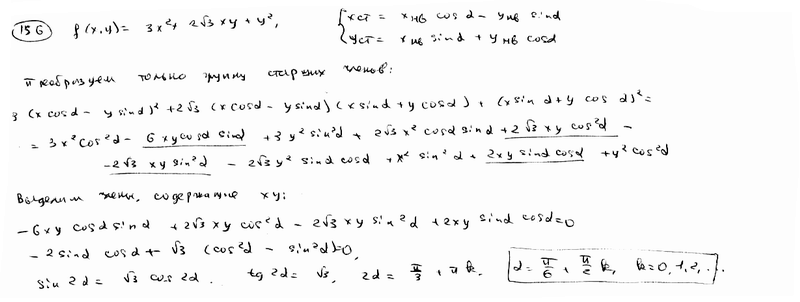 156 f(x,y) = 3x² + 2√3 xy + y², { xст = xнв cos α − yнв sin α
yст = xнв sin α + yнв cos α
преобразуем только группу старших членов:
3 (x cos α − y sin α)² + 2√3 (x cos α − y sin α)(x sin α + y cos α) + (x sin α + y cos α)² =
= 3x² cos² α − 6xy cos α sin α + 3y² sin² α + 2√3 x² cos α sin α + 2√3 xy cos² α −
− 2√3 xy sin² α − 2√3 y² sin α cos α + x² sin² α + 2xy sin α cos α + y² cos² α
Выделим члены, содержащие xy:
−6xy cos α sin α + 2√3 xy cos² α − 2√3 xy sin² α + 2xy sin α cos α = 0
−2 sin α cos α + √3 (cos² α − sin² α) = 0,
sin 2α = √3 cos 2α. tg 2α = √3, 2α = π/3 + πk. α = π/6 + π/2 k, k = 0, 1, 2, ...